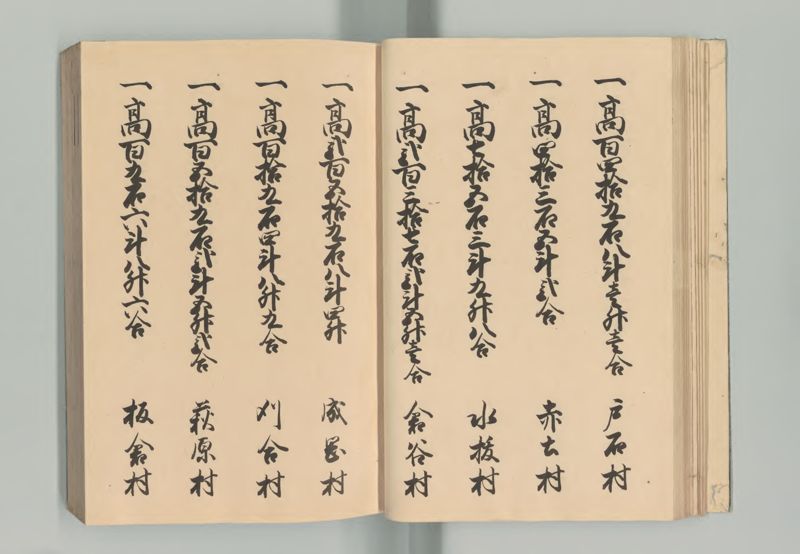 一高百四拾九石八斗壱升壱合 戸石村
一高四拾三石五斗弐合 赤土村
一高七拾五石三斗九升八合 水抜村
一高弐百三拾七石弐斗五升壱合 倉谷村
一高弐百五拾九石八斗四升 成岡村
一高百拾九石四斗八升九合 刈合村
一高百五拾九石弐斗五升弐合 萩原村
一高百九石六斗八升六合 板倉村